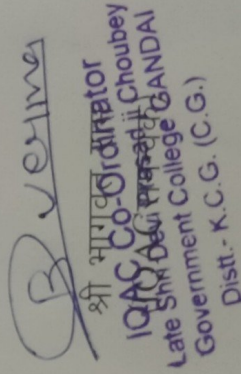 B Verma
श्री भागवत
IQAC Co-Ordinator
Late Shri Devi Prasad Ji Choubey
Government College GANDAI
Distt.- K.C.G. (C.G.)